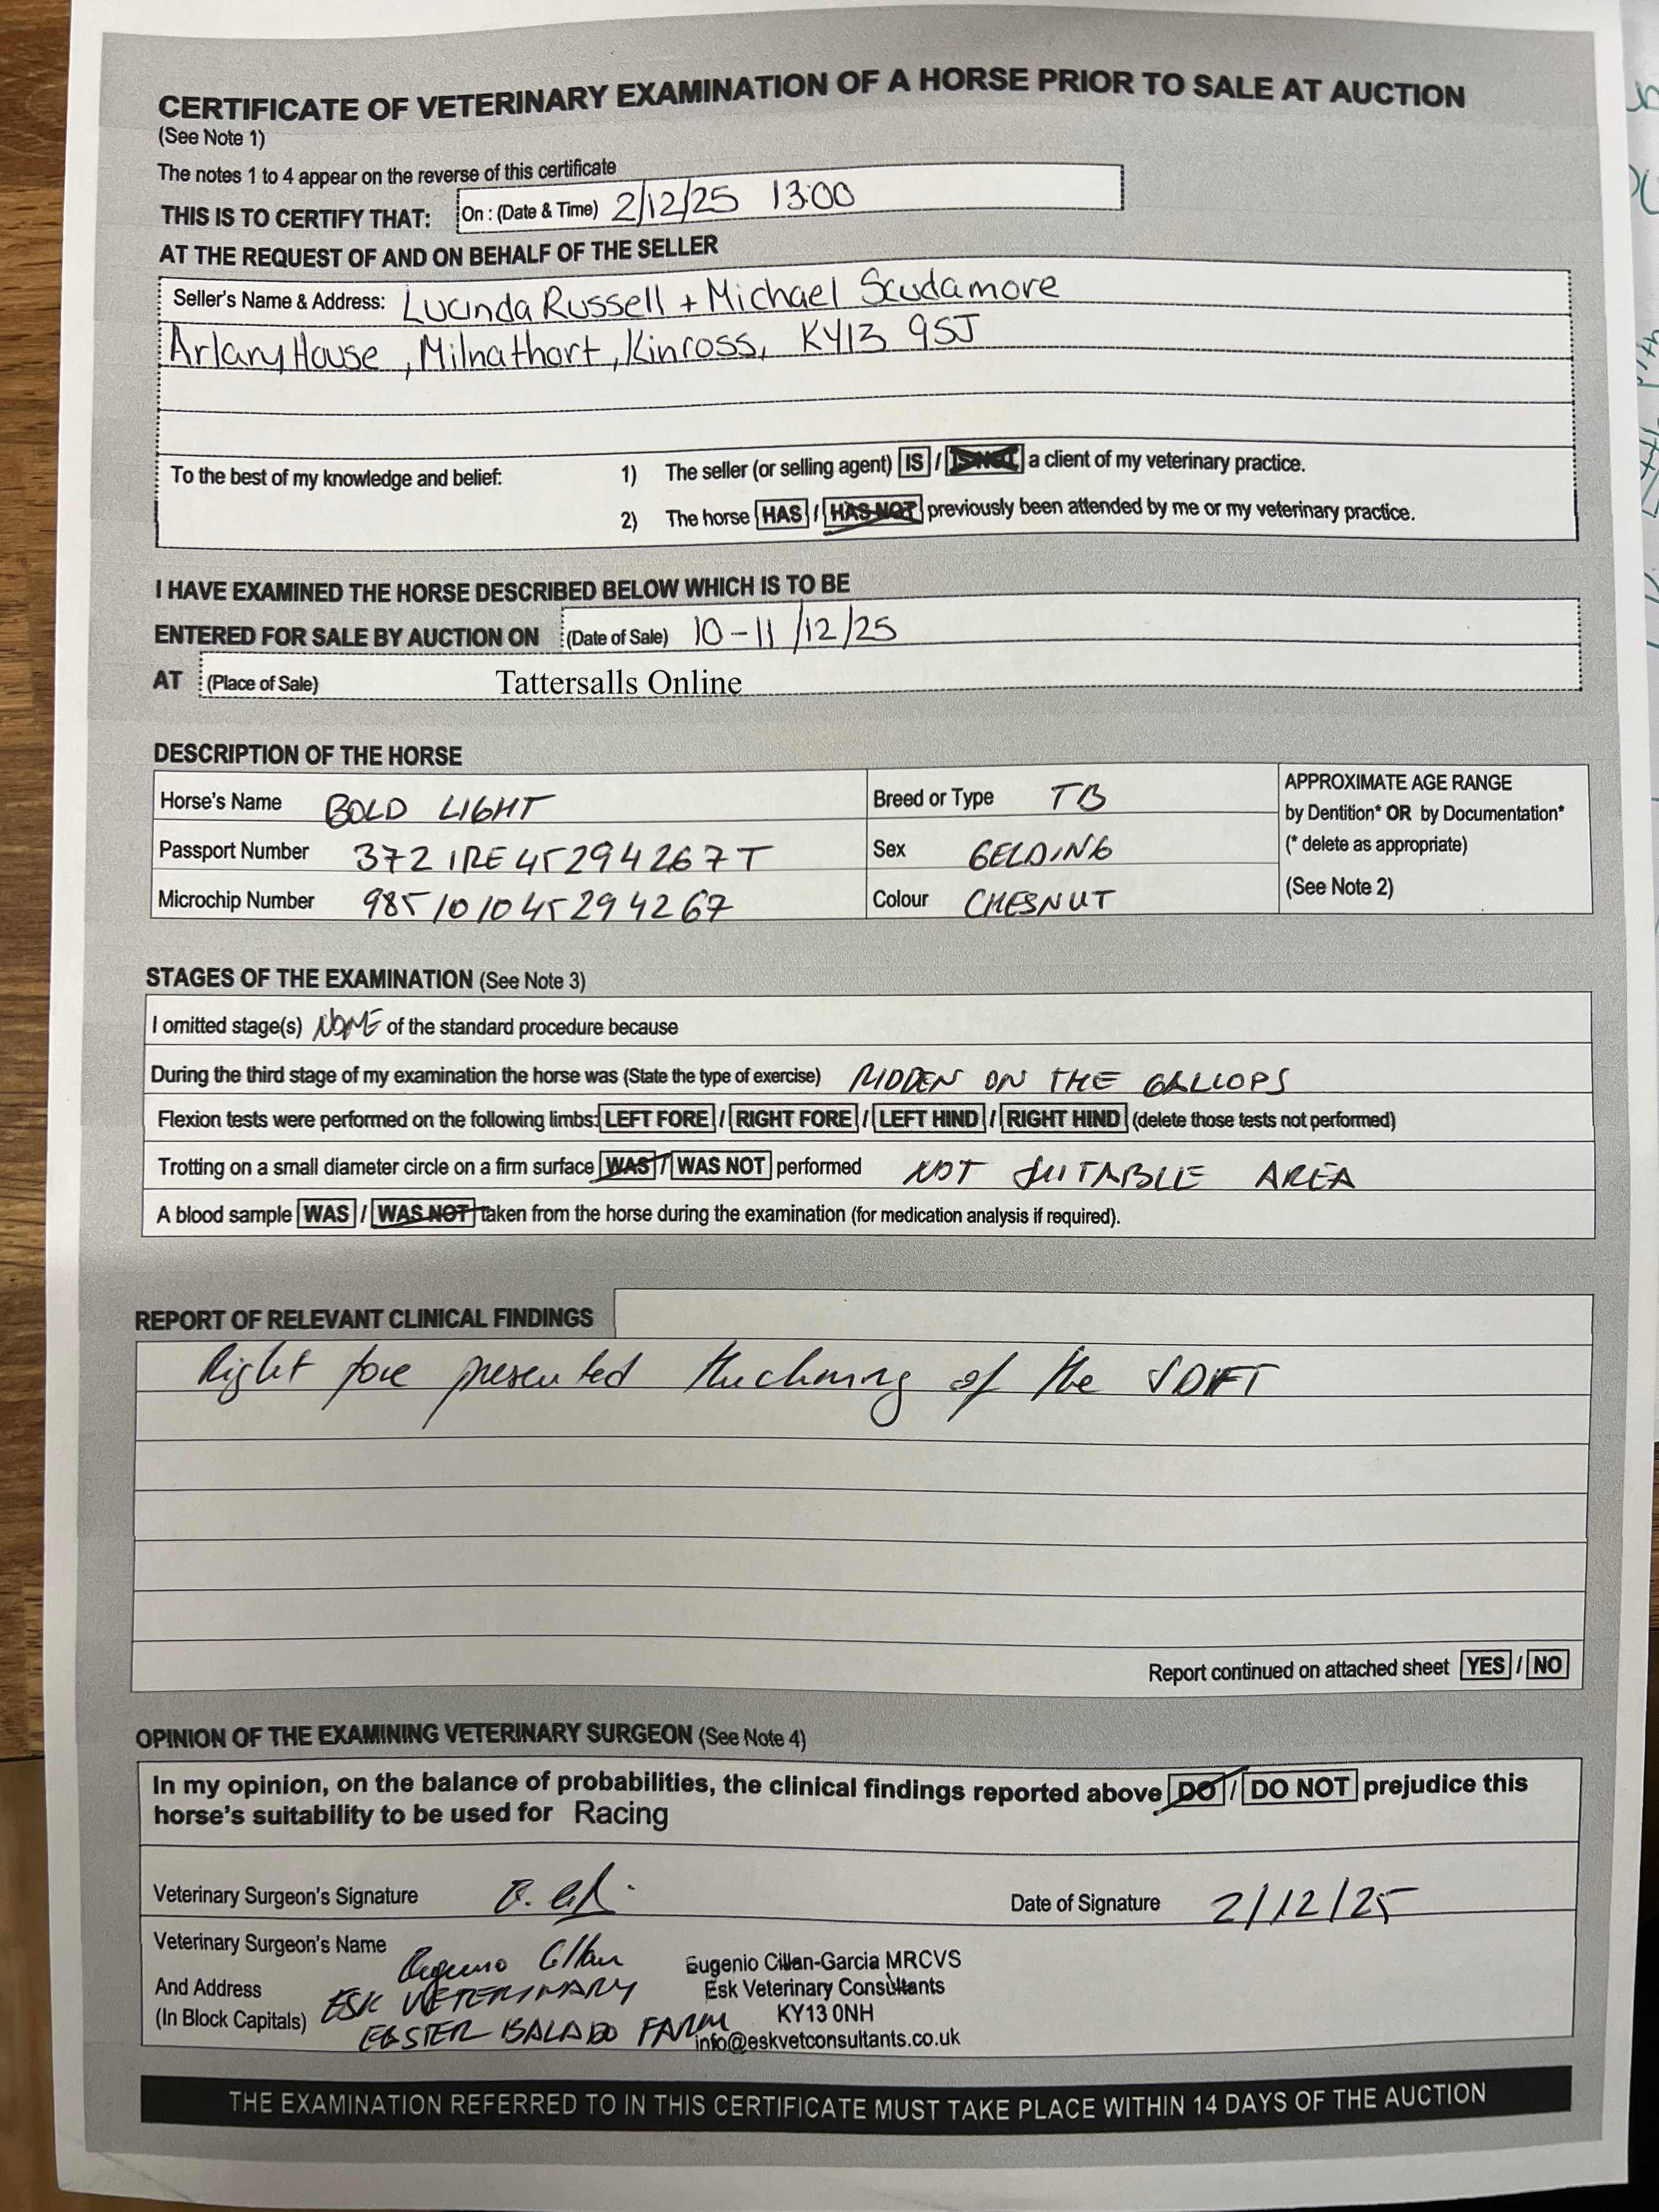 CERTIFICATE OF VETERINARY EXAMINATION OF A HORSE PRIOR TO SALE AT AUCTION
(See Note 1)
The notes 1 to 4 appear on the reverse of this certificate
THIS IS TO CERTIFY THAT: On : (Date & Time) 2/12/25 13:00
AT THE REQUEST OF AND ON BEHALF OF THE SELLER
Seller's Name & Address: Lucinda Russell + Michael Scudamore
Arlary House, Milnathort, Kinross, KY13 9SJ
To the best of my knowledge and belief: 1) The seller (or selling agent) IS / IS NOT a client of my veterinary practice.
2) The horse HAS / HAS NOT previously been attended by me or my veterinary practice.
I HAVE EXAMINED THE HORSE DESCRIBED BELOW WHICH IS TO BE
ENTERED FOR SALE BY AUCTION ON (Date of Sale) 10-11/12/25
AT (Place of Sale) Tattersalls Online
DESCRIPTION OF THE HORSE
Horse's Name BOLD LIGHT Breed or Type TB
Passport Number 372 IRE 45294267 T Sex GELDING
Microchip Number 985101045294267 Colour CHESNUT
APPROXIMATE AGE RANGE
by Dentition* OR by Documentation*
(* delete as appropriate)
(See Note 2)
STAGES OF THE EXAMINATION (See Note 3)
I omitted stage(s) NONE of the standard procedure because
During the third stage of my examination the horse was (State the type of exercise) RIDDEN ON THE GALLOPS
Flexion tests were performed on the following limbs: LEFT FORE / RIGHT FORE / LEFT HIND / RIGHT HIND (delete those tests not performed)
Trotting on a small diameter circle on a firm surface WAS / WAS NOT performed NOT SUITABLE AREA
A blood sample WAS / WAS NOT taken from the horse during the examination (for medication analysis if required).
REPORT OF RELEVANT CLINICAL FINDINGS
Right fore presented thickening of the SDFT
Report continued on attached sheet YES / NO
OPINION OF THE EXAMINING VETERINARY SURGEON (See Note 4)
In my opinion, on the balance of probabilities, the clinical findings reported above DO / DO NOT prejudice this
horse's suitability to be used for Racing
Veterinary Surgeon's Signature Date of Signature 2/12/25
Veterinary Surgeon's Name
And Address
(In Block Capitals)
Eugenio Cillan
ESK VETERINARY
EASTER BALADO FARM
Eugenio Cillan-Garcia MRCVS
Esk Veterinary Consultants
KY13 0NH
info@eskvetconsultants.co.uk
THE EXAMINATION REFERRED TO IN THIS CERTIFICATE MUST TAKE PLACE WITHIN 14 DAYS OF THE AUCTION